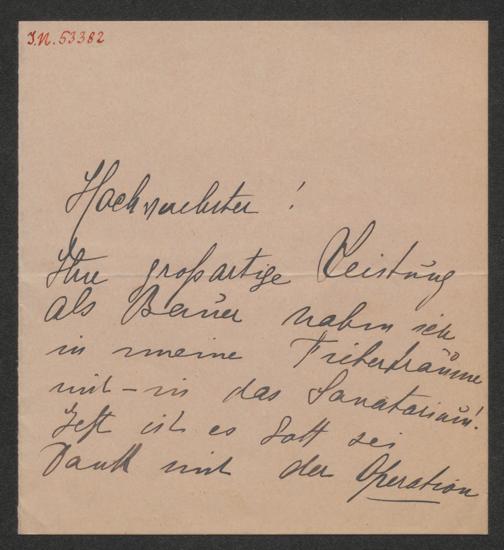 J.N. 53382
Hochverehrter!
Ihre großartige Leistung
als Bauer nahm ich
in meine Fieberträume
mit – in das Sanatorium!
Jetzt ist es Gott sei
Dank mit der Operation